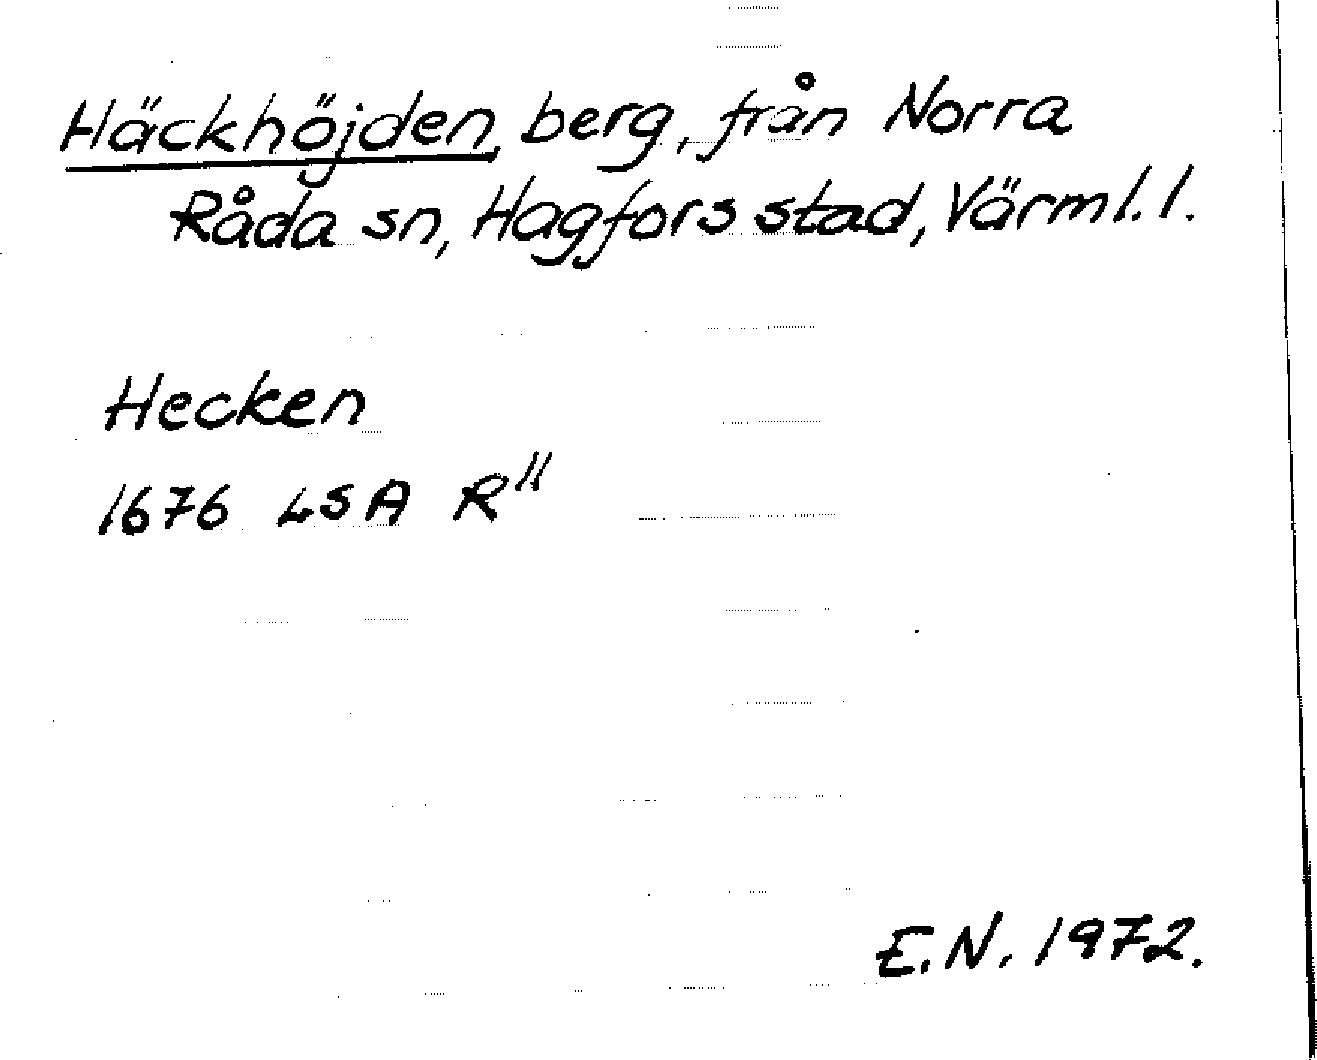 Häckhöjden, berg, från Norra
Råda sn, Hagfors stad, Värml.l.
Hecken
1676 LSA R"
E.N. 1972.